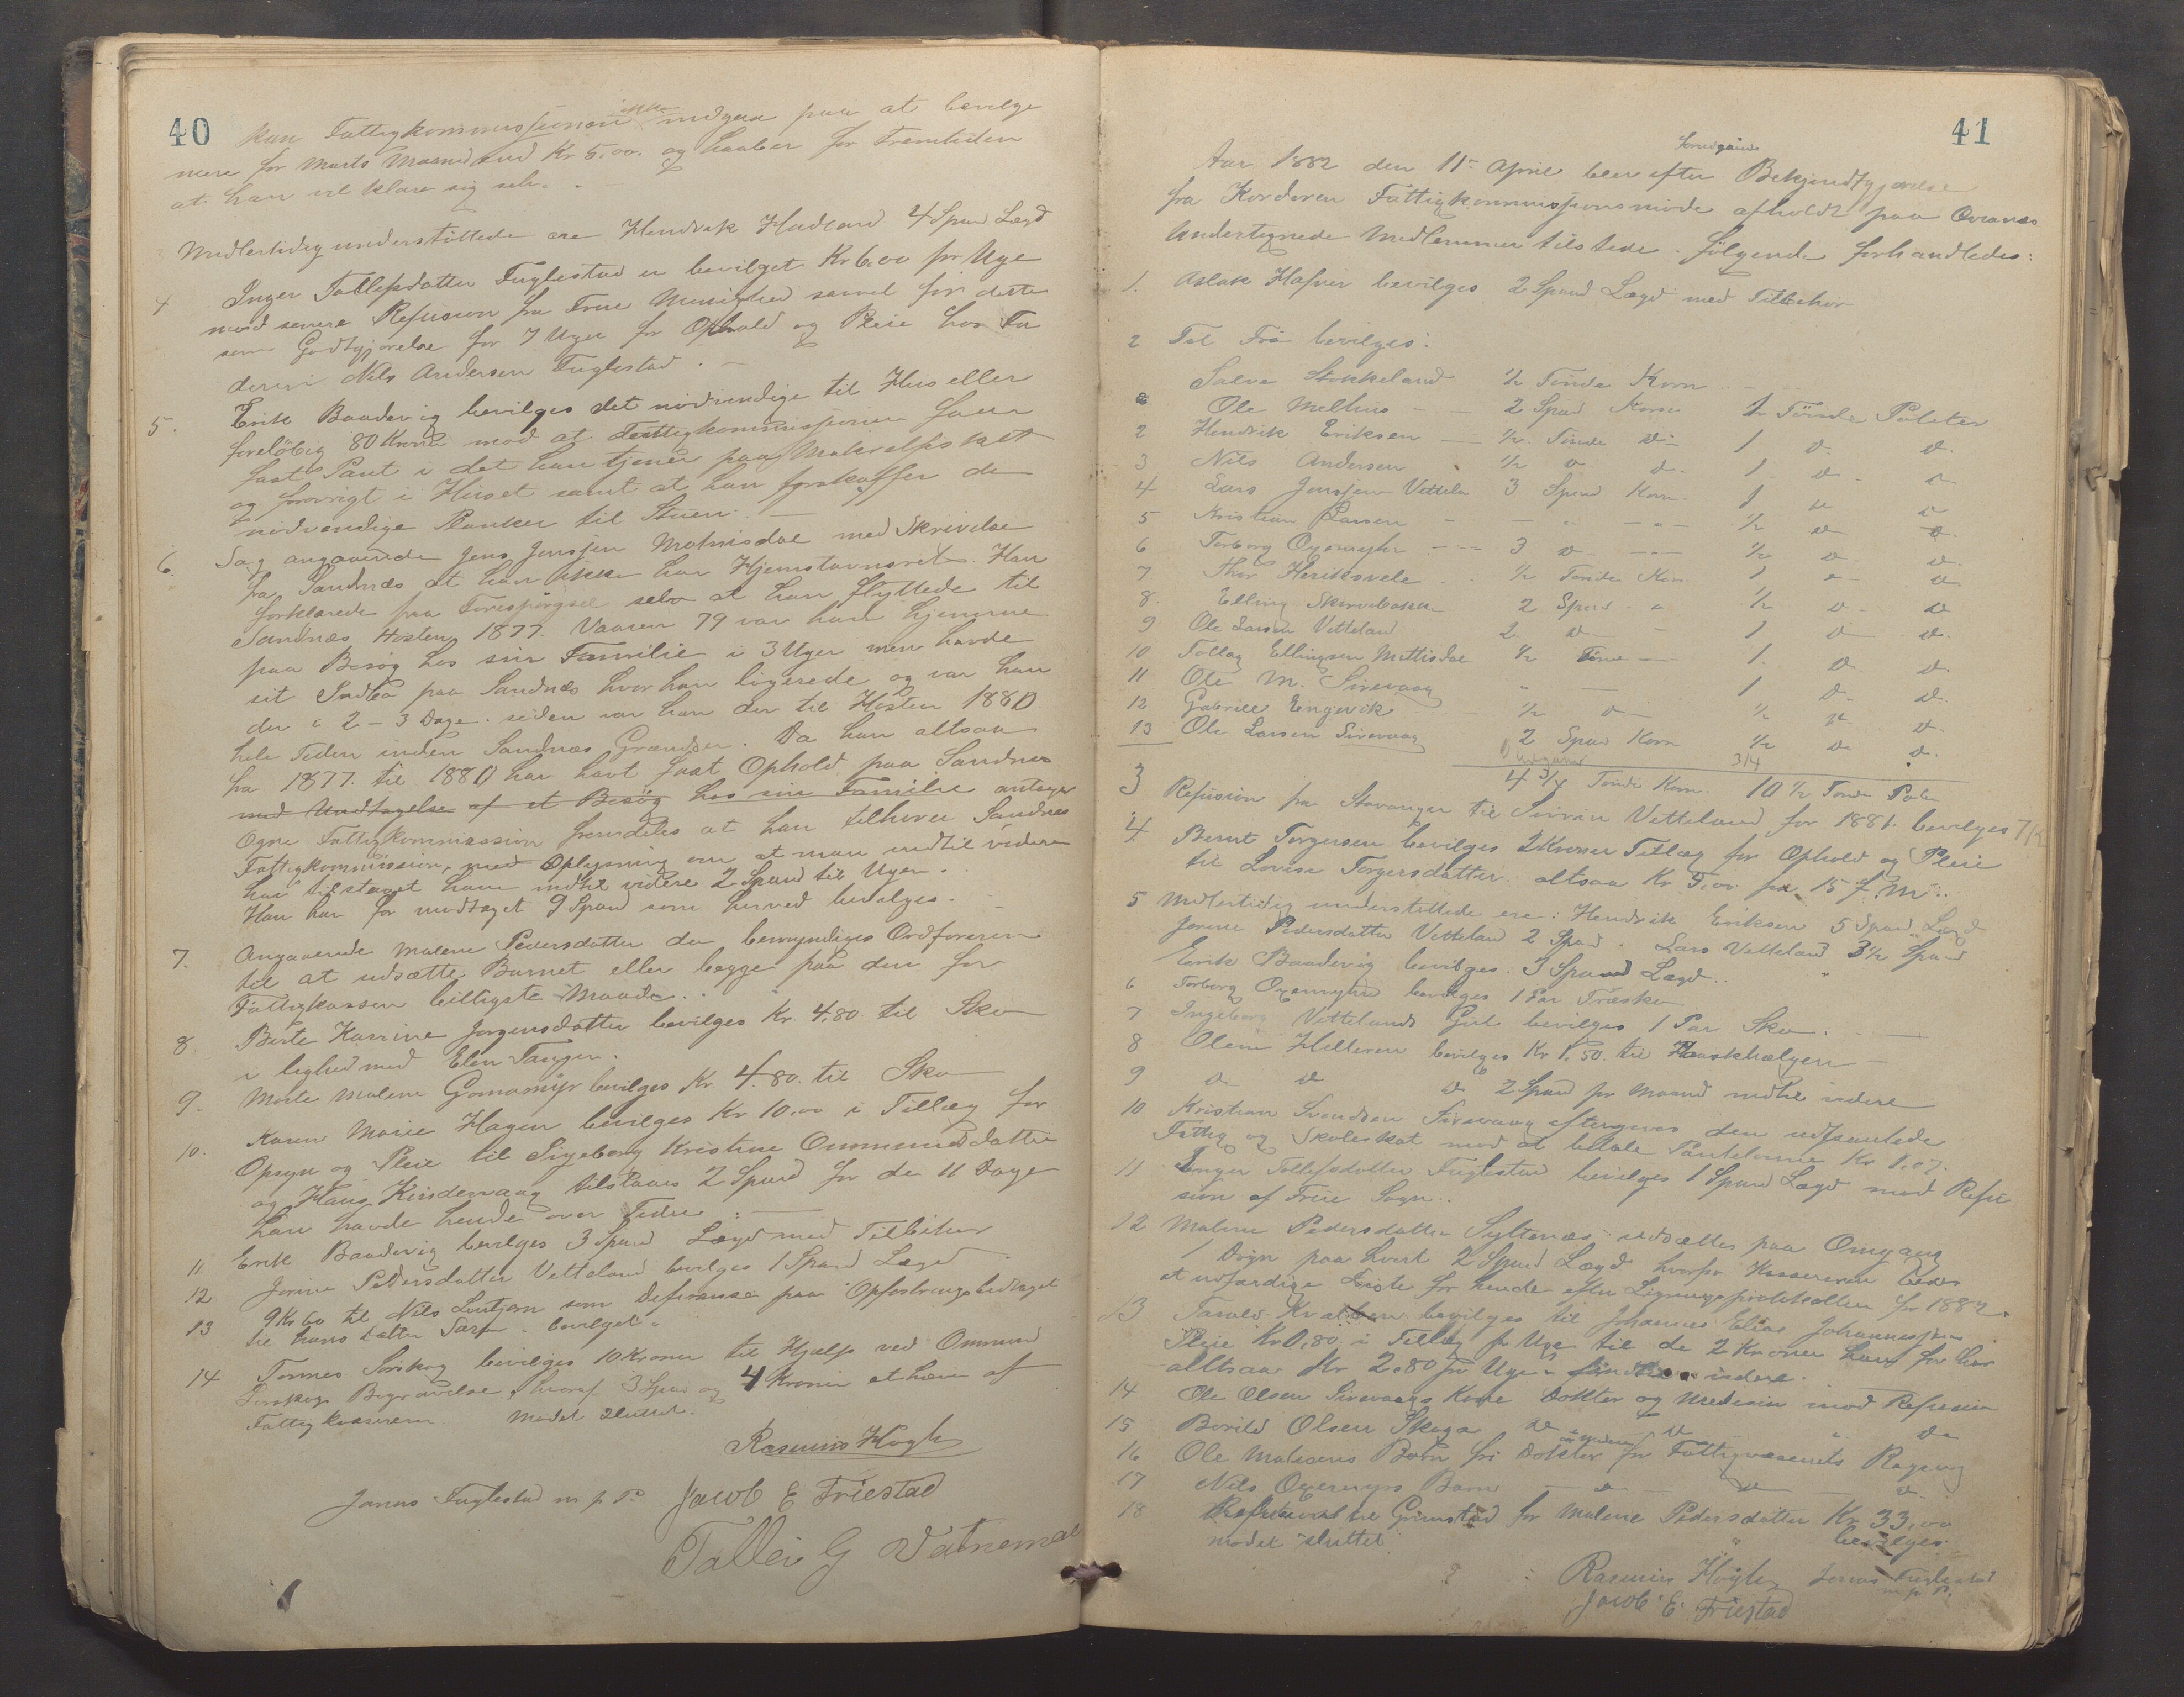 40
kan Fattigkommissionen ikke indgaa paa at bevilge
mere for Marts Maaned end Kr 5.00. og haaber for Fremtiden
at han vil klare sig selv. -
Midlertidig understøttede ere Hendrik 4 Spand Lægd
4 Inger Tollefsdatter Fuglestad er bevilget Kr 6.00 pr Uge
mod senere Refusion fra Frue Menighed saavel for dette
som Godtgjørelse for 7 Uger for Ophold og Pleie hos Fa
deren Nils Andersen Fuglestad. -
5. Erik Baadevig bevilges det nødvendige til Hus eller
foreløbig 80 Kroner mod at Fattigkommissionen faaer
fast Pant i det han tjener paa Makrelfisket
og forøvrigt i Huset samt at han forskaffer de
nødvendige Planker til Stuen. -
6. Sag angaaende Jens Jensen Matnisdal med Skrivelse
fra Sandnæs at han ikke har Hjemstavnsret. Han
forklarede paa Forespørgsel selv at han flyttede til
Sandnæs Høsten 1877. Vaaren 79 var han hjemme
paa Besøg hos sin Familie i 3 Uger men havde
sit Indbo paa Sandnæs hvor han logerede og var han
der i 2-3 Dage. siden var han der til Høsten 1880
hele Tiden inden Sandnæs Grændser. Da han altsaa
fra 1877. til 1880 har havt fast Ophold paa Sandnæs
med Undtagelse af et Besøg hos sin Familie antager
Ogne Fattigkommission fremdeles at han tilhører Sandnes
Fattigkommission, med Oplysning om at man indtil videre
har tilstaaet ham indtil videre 2 Spand til Ugen.
Han har før modtaget 9 Spand som herved bevilges.
7. Angaaende Malene Pedersdatter da bemyndiges Ordføreren
til at udsætte Barnet eller begge paa den for
Fattigkassen billigste Maade.
8 Berte Karine Jørgensdatter bevilges Kr. 4.80 til Sko
i lighed med Elen Tangen.
9. Marte Malene bevilges Kr. 4.80. til Sko
10. Karen Marie Hagen bevilges Kr 10.00 i Tillæg for
Opsyn og Pleie til Ingeborg Kristine Ommundsdatter
og Hans tilstaaes 2 Spand for de 11 Dage
han havde hende over Tiden. -
11 Erik Baadevig bevilges 3 Spand Lægd med Tilbehør
12 Jorine Pedersdatter Vetteland bevilges 1 Spand Lægd
13 9 Kr 60 til Nils som Deferanse paa Opfostringsbidraget
til hans Datter bevilget.
14 Tønnes bevilges 10 Kroner til Hjælp ved Ommund
Begravelse, hvoraf 3 Spand og 4 Kroner at hæve af
Fattigkassereren Mødet sluttet.
Rasmus Høgh
Jonas Fuglestad m. p. P. Jacob E Friestad
Tollei G Vatnemo
41
Aar 1882 den 11te April blev efter foregaaende Bekjendtgjørelse
fra Ordføreren Fattigkommissionsmøde afholdt paa
Undertegnede Medlemmer tilstede. følgende forhandledes:
1. Aslak bevilges 2 Spand Lægd med Tilbehør
2 Til Frø bevilges:
Salve Stokkeland 1/2 Tønde Korn
Ole Melhus - 2 Spand Korn 1/2 Tønde Poteter
2 Hendrik Eriksen - 1/2 Tønde do 1 do do
3 Nils Andersen 1/2 do do 1 do do
4 Lars Jensen Vetteland 3 Spand Korn 1 do do
5 Kristian Larsen - 1/2 do do
6 Torborg Oxemyhr - 3 do 1/2 do do
7 Thor 1/2 Tønde Korn 1 do do
8. Elling 2 Spand 1/2 do do
9 Ole Larsen Vetteland 2 do 1 do do
10 Tollag Ellingsen Mattisdal 1/2 Tønde 1. do do
11 Ole M. Sirevaag 1 do do
12 Gabriel 1/2 do 1/2 do do
13 Ole Larsen Sirevaag 2 Spand Korn 1/2 do do
4 3/4 Tønde Korn 10 1/2 Tønde Poter
3 Refusion fra Stavanger til Vetteland for 1881. bevilges
4 Bernt Torgersen bevilges 2 Kroner Tillæg for Ophold og Pleie
til Lovise Torgersdatter altsaa Kr 5.00 fra 15 f. M.
5 Midlertidig understøttede ere: Hendrik Eriksen 5 Spand Lægd
Jorine Pedersdatter Vetteland 2 Spand. Lars Vetteland 3 1/2 Spand
Erik Baadevig bevilges 3 Spand Lægd..
6 Torborg Oxemyhr bevilges 1 Par Træsko
7 Ingeborg Vettelands Gut bevilges 1 Par Sko. -
8 Oline Helleren bevilges Kr 1.50. til
9 do do do 2 Spand pr Maaned indtil videre
10 Kristian Svendsen Sirevaag eftergives den udpantede
Fattig og Skoleskat mod at betale Panteloverne Kr 1.07.
11 Inger Tollefsdatter Fuglestad bevilges 1 Spand Lægd mod Refu
sion af Frue Sogn..
12 Malene Pedersdatter udsættes paa Omgang
1 Døgn paa hvert 2 Spand Lægd hvorfor Kassereren bedes
at udfærdige Liste for hende efter Ligningsprotokollen for 1882.
13 Tarald bevilges til Johannes Elias Johannessens
Pleie Kr 0.80 i Tillæg pr Uge til de 2 Kroner han før har
altsaa Kr 2.80 pr Uge indtil videre.
14 Ole Olsen Sirevaags Kone Doktor og Medicin mod Refusion
15 Borild Olsen Skoga do do do
16 Ole Matisens Barn fri Doktor for Fattigvæsenets Regning
17 Nils Oxemyrs Barn do do do
18 Refusion til Grimstad for Malene Pedersdatter Kr 33,00
bevilges.
mødet sluttet
Rasmus Høgh Jonas Fuglestad
m. p. P.
Jacob E. Friestad